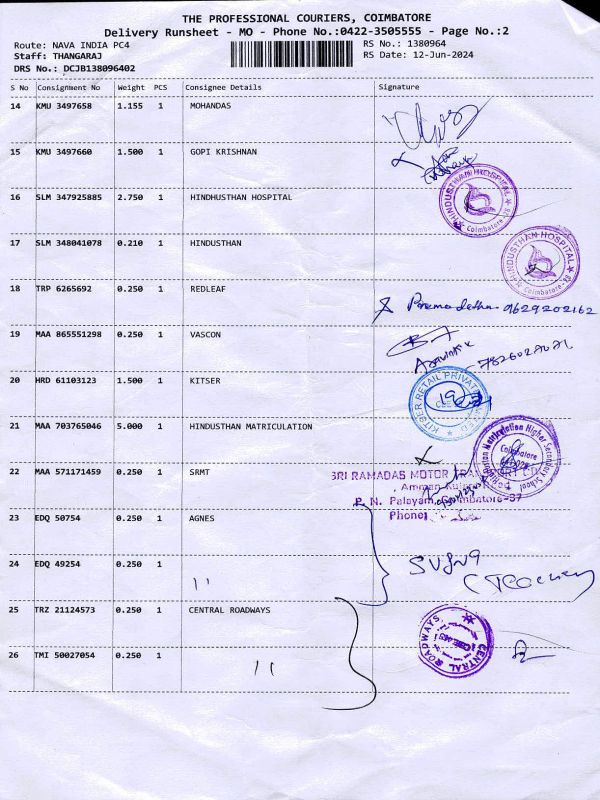 THE PROFESSIONAL COURIERS, COIMBATORE
Delivery Runsheet - MO - Phone No.:0422-3505555 - Page No.:2
Route: NAVA INDIA PC4
RS No.: 1380964
Staff: THANGARAJ
RS Date: 12-Jun-2024
DRS No.: DCJB138096402
S No Consignment No Weight PCS Consignee Details Signature
14 KMU 3497658 1.155 1 MOHANDAS
15 KMU 3497660 1.500 1 GOPI KRISHNAN
16 SLM 347925885 2.750 1 HINDHUSTHAN HOSPITAL
HINDUSTHAN HOSPITAL
Coimbatore
17 SLM 348041078 0.210 1 HINDUSTHAN
HINDUSTHAN HOSPITAL
Coimbatore
18 TRP 6265692 0.250 1 REDLEAF
9629202162
19 MAA 865551298 0.250 1 VASCON
20 HRD 61103123 1.500 1 KITSER
KITSER RETAIL PRIVATE
21 MAA 703765046 5.000 1 HINDUSTHAN MATRICULATION
Matriculation Higher Secondary School
Coimbatore
22 MAA 571171459 0.250 1 SRMT
SRI RAMADAS MOTOR
P. N. Palayam, Coimbatore-37
Phone:
23 EDQ 50754 0.250 1 AGNES
24 EDQ 49254 0.250 1 ''
25 TRZ 21124573 0.250 1 CENTRAL ROADWAYS
CENTRAL ROADWAYS
26 TMI 50027054 0.250 1 ''